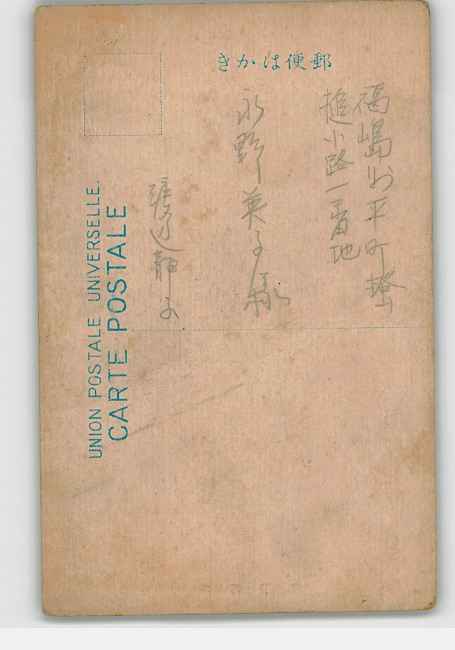 きかは便郵
福嶋縣平町
搥小路一番地
永野英子様
渡辺静子
UNION POSTALE UNIVERSELLE.
CARTE POSTALE